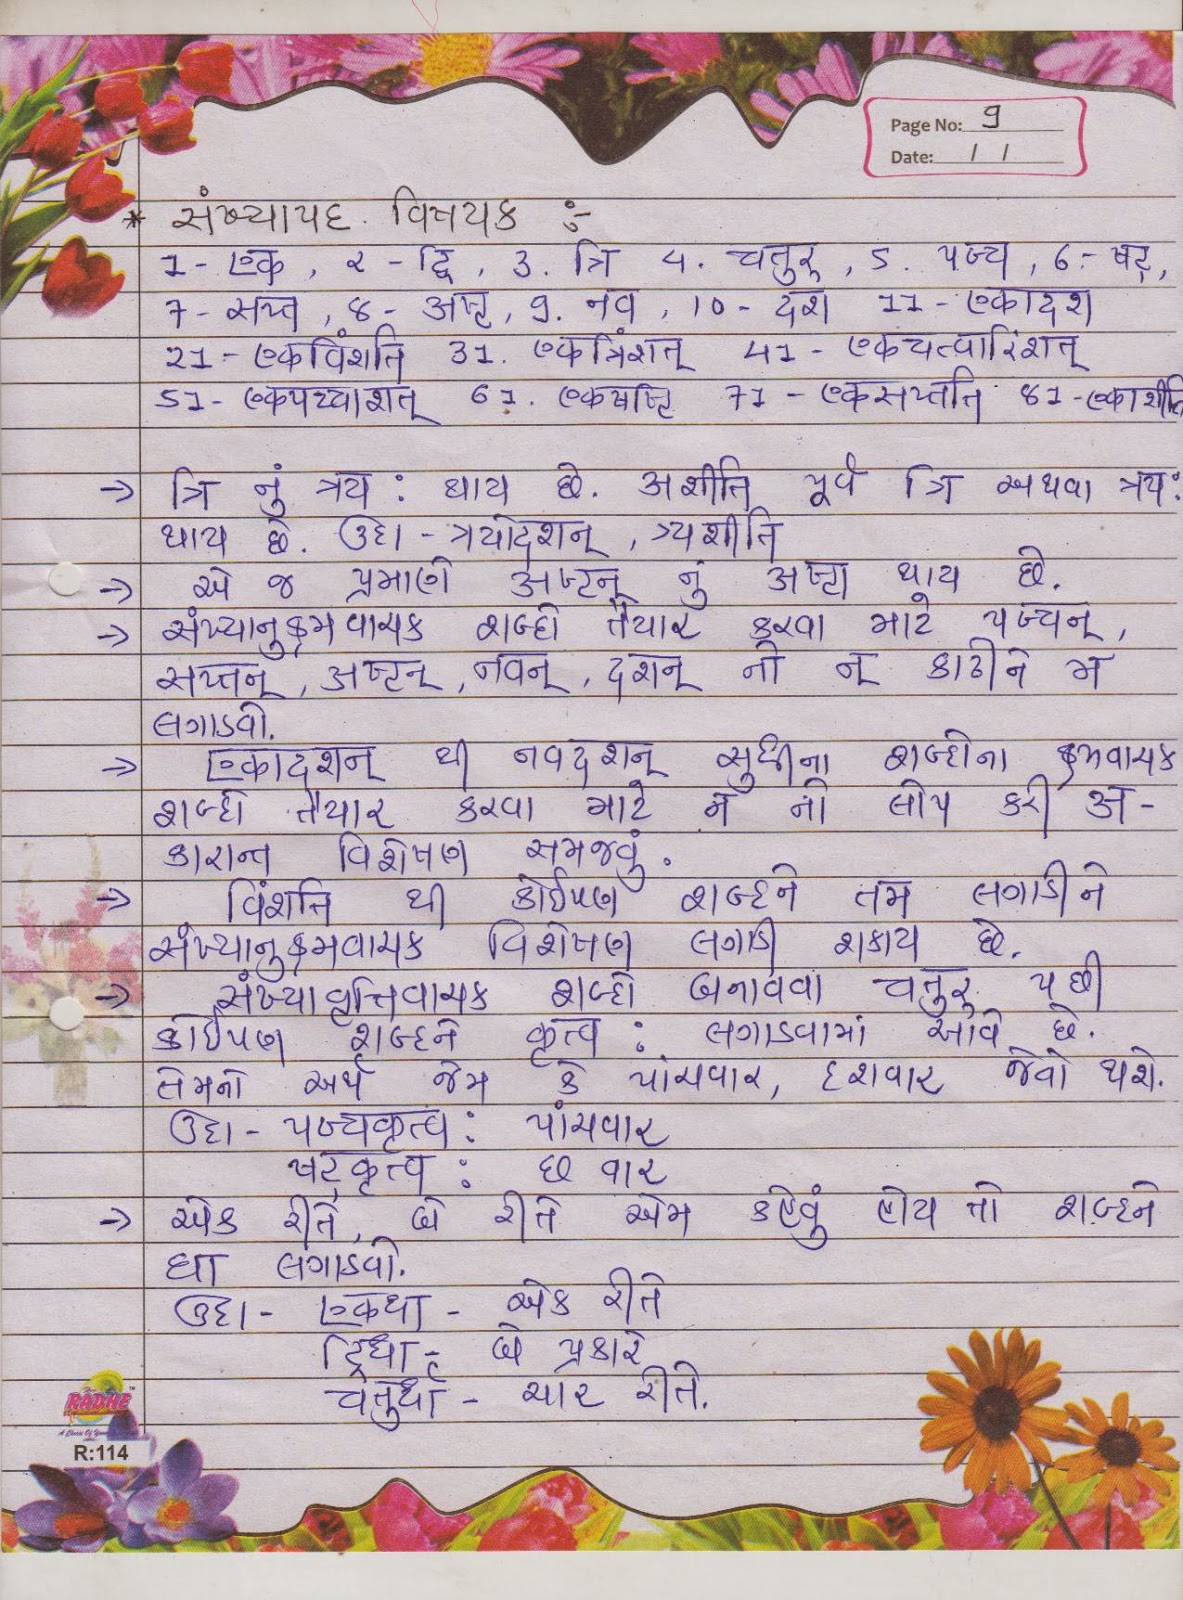 Page No: 9
Date: / /
* સંખ્યાપદ વિષયક :-
1- एक, ૨ - द्वि, 3. त्रि 4. चतुर्, 5. पञ्च, 6.- षट्,
7- सप्त, 8- अष्ट, 9. नव, 10 - दश 11 - एकादश
21 - एकविंशति 31. एकत्रिंशत् 41 - एकचत्वारिंशत्
51- एकपञ्चाशत् 61. एकषष्टि 71 - एकसप्तति 81 - एकाशीति
→ त्रि નું त्रय: થાય છે. अशीति પૂર્વે त्रि અથવા त्रय:
થાય છે. ઉદા - त्रयोदशन्, त्र्यशीति
→ એ જ પ્રમાણે अष्टन् નું अष्टा થાય છે.
→ સંખ્યાનુક્રમવાચક શબ્દો તૈયાર કરવા માટે पञ्चन्,
सप्तन्, अष्टन्, नवन्, दशन् નો न् કાઢીને म
લગાડવો.
→ एकादशन् થી नवदशन् સુધીના શબ્દોના ક્રમવાચક
શબ્દો તૈયાર કરવા માટે न નો લોપ કરી अ-
કારાન્ત વિશેષણ સમજવું.
→ विंशति થી કોઈપણ શબ્દને तम લગાડીને
સંખ્યાનુક્રમવાચક વિશેષણ લગાડી શકાય છે.
→ સંખ્યાવૃત્તિવાચક શબ્દો બનાવવા चतुर् પછી
કોઈપણ શબ્દને कृत्व: લગાડવામાં આવે છે.
તેમનો અર્થ જેમ કે પાંચવાર, દશવાર જેવો થશે.
ઉદા - पञ्चकृत्व: પાંચવાર
षट्कृत्व: છ વાર
→ એક રીતે, બે રીતે એમ કહેવું હોય તો શબ્દને
धा લગાડવો.
ઉદા - एकधा - એક રીતે
द्विधा - બે પ્રકારે
चतुर्धा - ચાર રીતે.
RADHE
R:114